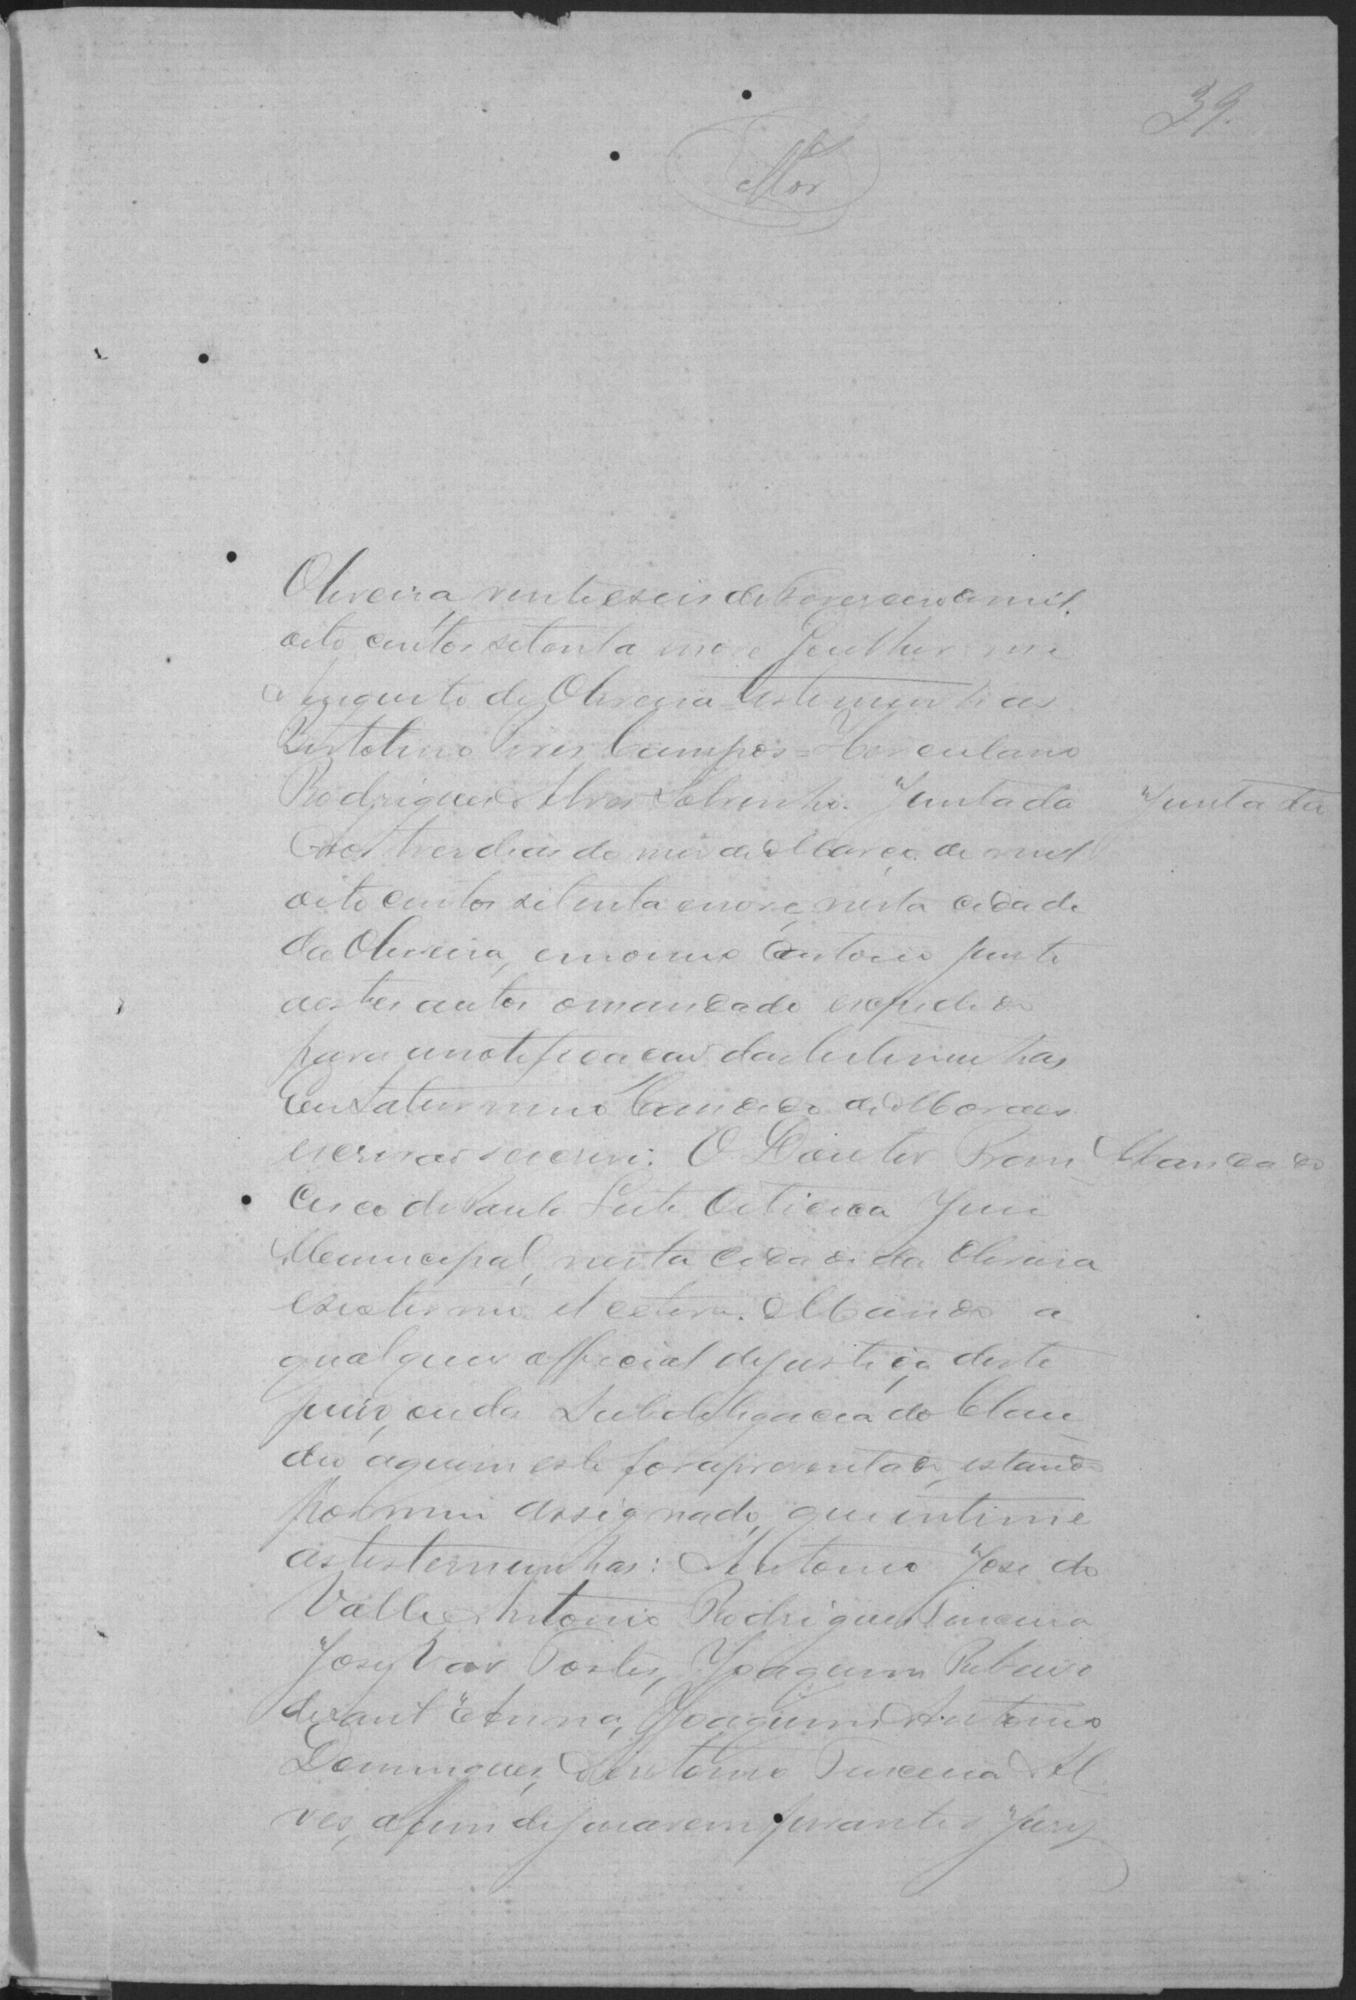 39.
Mor
Oliveira, vinte e seis de Fevereiro de mil
oito centos setenta nove Guilherme
Augusto de Oliveira testemunhas
Bertolino Pires Campos = Herculano
Rodrigues Alves Sobrinho. Juntada
Juntada
Aos tres dias do mez de Março de mil
oito centos setenta e nove, nesta cidade
da Oliveira, em o meu Cartorio junto
aestes autos o mandado expedido
para a notificacao das testemunhas
Eu Saturnino Candido de Moraes
escrivao escrevi. O Doutor Fran
Mandado
cisco de Paula Leite Oiticica Juiz
Municipal, nesta cidade da Oliveira
e seo termo et cetera. Mando a
qualquer official de justiça deste
juizo, ou da Subdelegacia do Clau
dio aquem este for apresentado, estando
por mim assignado, que intime
as testemunhas: Antonio Jose do
Valle, Antonio Rodrigues Teixeira
José Vaz Tostes, Joaquim Ribeiro
de Sant Anna, Joaquim Antonio
Domingues, Antonio Teixeira Al
ves, afim de jurarem perante o Jury